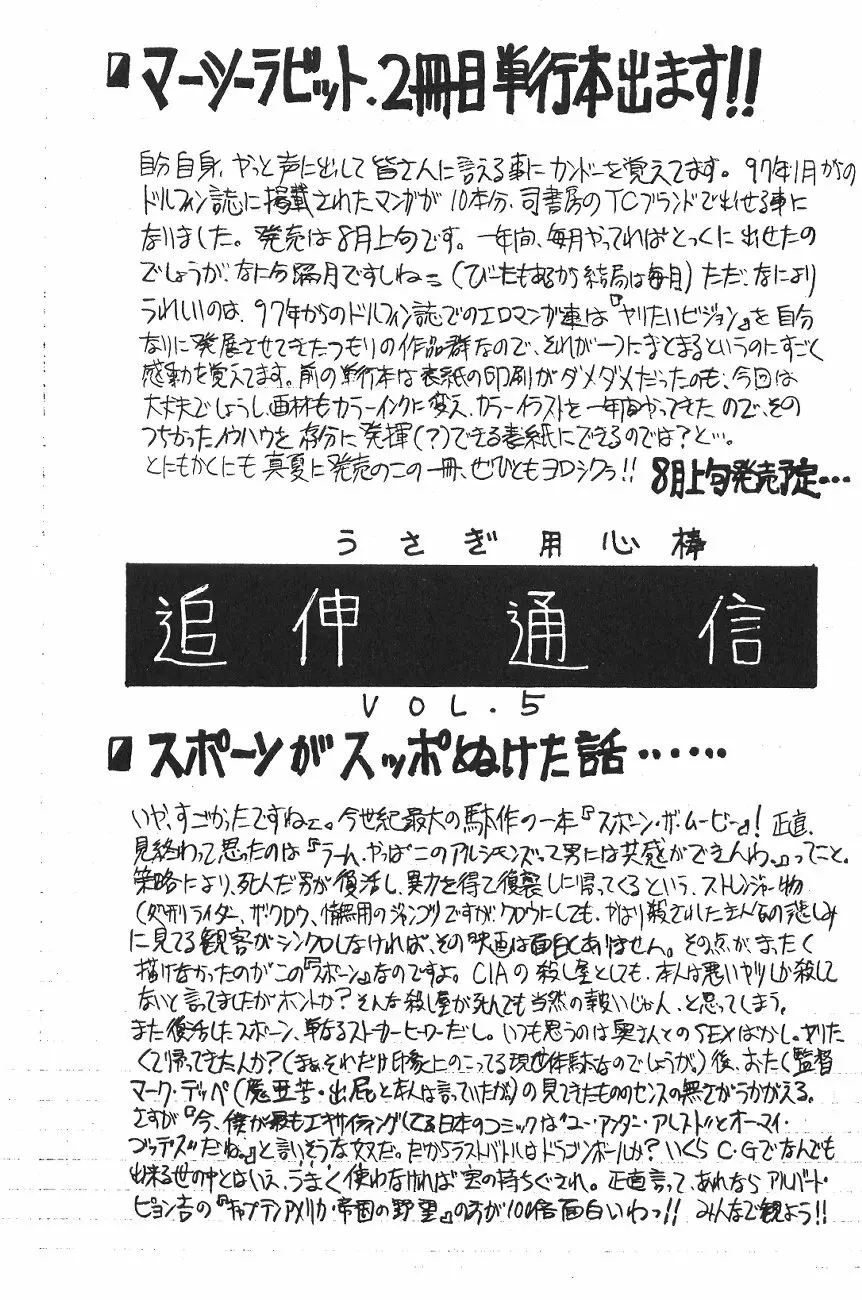 マーシーラビット.2冊目単行本出ます!!
自分自身、やっと声に出して皆さんに言える事にカンドーを覚えてます。97年1月からの
ドルフィン誌に掲載されたマンガが10本分、司書房のTCブランドで出せる事に
なりました。発売は8月上旬です。一年間、毎月やってればとっくに出せたの
でしょうが、なに分隔月ですしね(びーたもあるから結局は毎月)ただ、なにより
うれしいのは、97年からのドルフィン誌でのエロマンガ達は『ヤリたいビジョン』を自分
なりに発展させてきたつもりの作品群なので、それが一つにまとまるというのにすごく
感動を覚えてます。前の単行本は表紙の印刷がダメダメだったのも、今回は
大丈夫でしょうし、画材もカラーインクに変え、カラーイラストを一年間やってきたので、その
つちかったノウハウを存分に発揮(?)できる表紙にできるのでは?と…。
とにもかくにも真夏に発売のこの一冊、ぜひともヨロシクぅ!! 8月上旬発売予定…
うさぎ用心棒
追伸通信
VOL.5
スポーンがスッポぬけた話……
いや、すごかったですねェ。今世紀最大の駄作の一本『スポーン・ザ・ムービー』! 正直、
見終わって思ったのは『うーん、やっぱこのアルシモンズって男には共感ができんわ。』ってこと。
策略により、死んだ男が復活し、暴力を得て復讐しに帰ってくるという、ストレンジャー物
(処刑ライダー、ザ・クロウ、情無用のジャンゴ)ですが、クロウにしても、やはり殺された主人公の悲しみ
に見てる観客がシンクロしなければ、その映画は面白くありません。その点が、まったく
描けなかったのがこの『スポーン』なのですよ。CIAの殺し屋としても、本人は悪いヤツしか殺して
ないと言ってましたがホントか? そんな殺し屋が死んでも当然の報いじゃん、と思ってしまう。
また復活したスポーン、単なるストーカーヒーローだし。いつも思うのは奥さんとのSEXばかし。ヤリた
くて帰ってきた人か?(まぁそれだけ印象上のこってる現世体験なのでしょうが。)後、おた(監督
マーク・デッペ(魔亜苦・出屁と本人は言っていたが)の見てきたもののセンスの無さがうかがえる。
さすが『今、僕が最もエキサイティングしてる日本のコミックは"ユー・アンダー・アレスト"とオーマイ・
ゴッデス"だね。』と言いそうな奴だ。だからラストバトルはドラゴンボールか? いくらC・Gでなんでも
出来る世の中とはいえ、うまく使わなければ宝の持ちぐされ。正直言って、あれならアルバート・
ピョン吉の『キャプテンアメリカ・帝国の野望』の方が100倍面白いわっ!! みんなで観よう!!